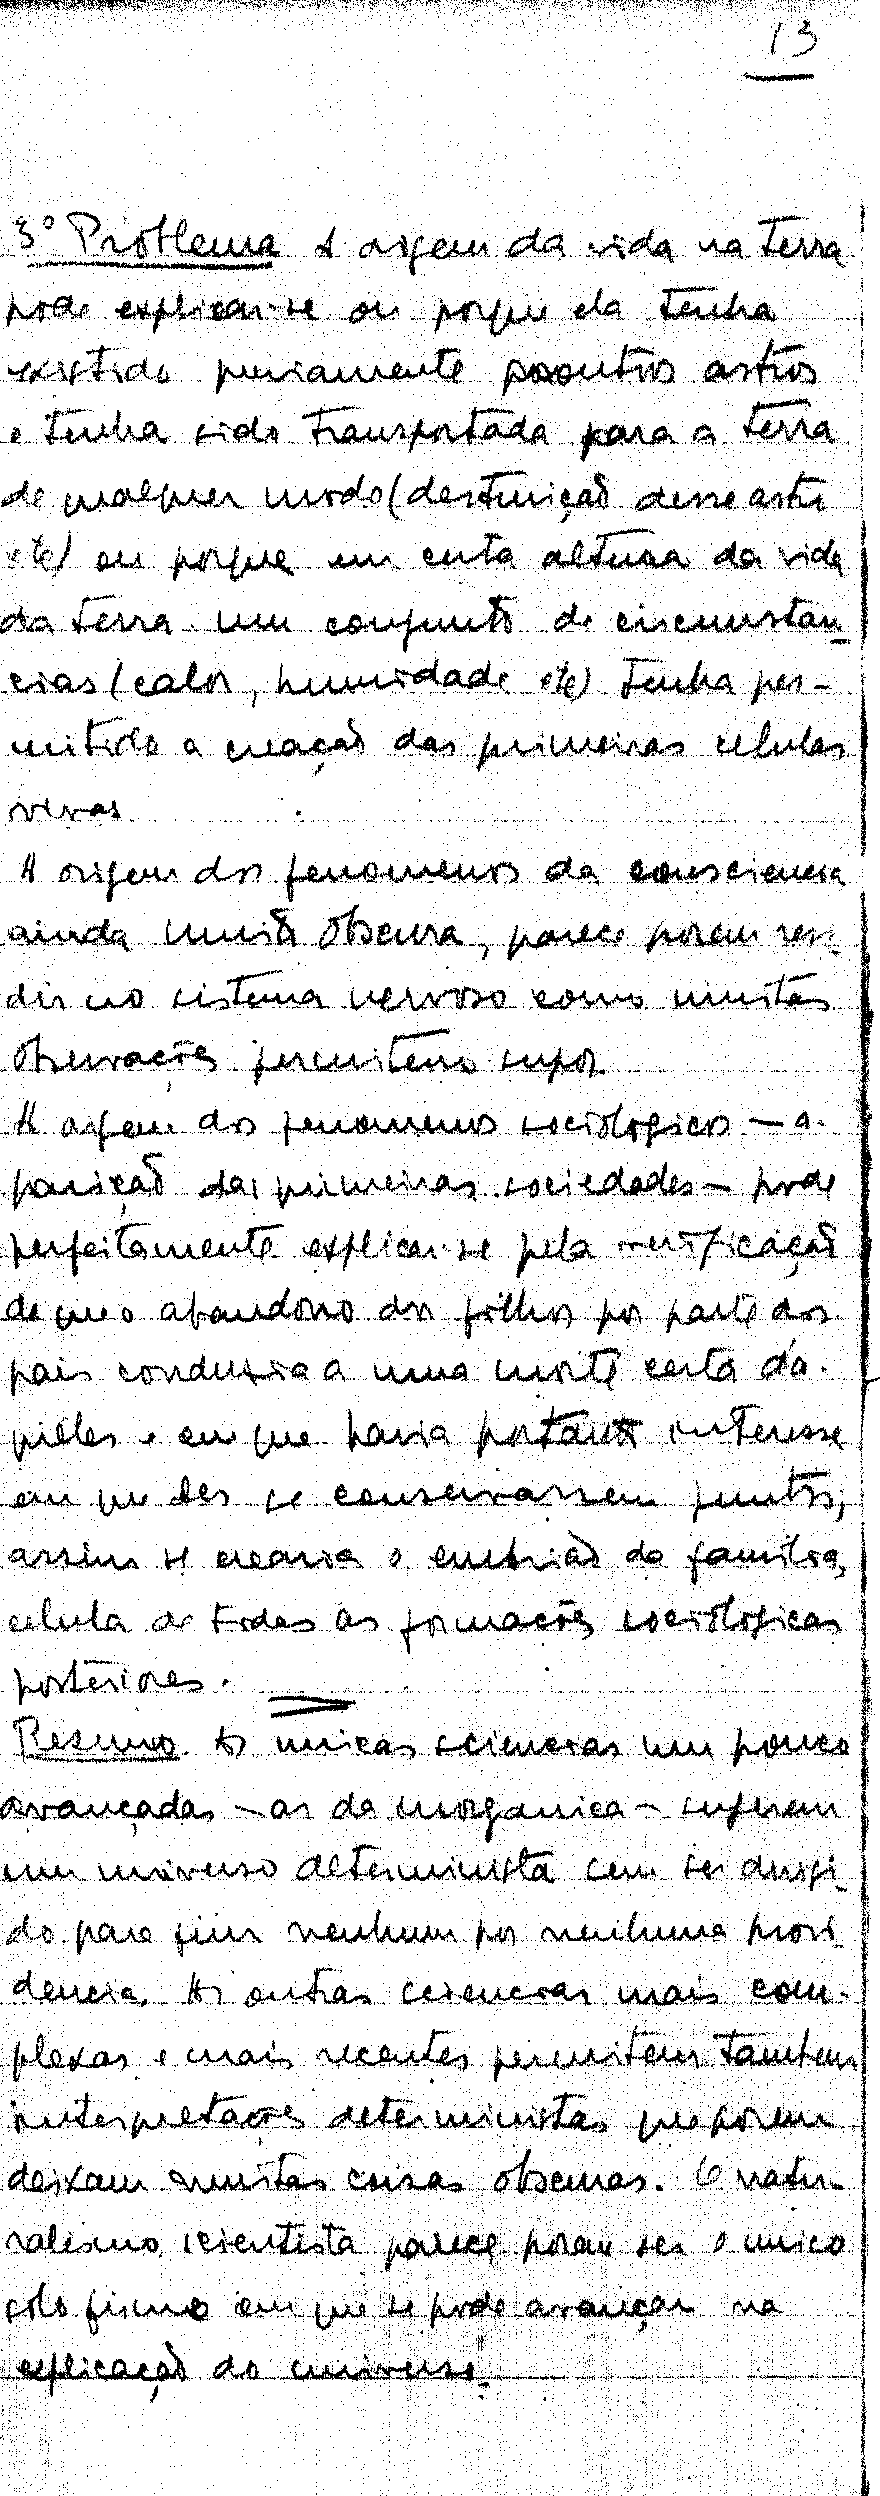 13
3º Problema A origem da vida na terra
pode explicar-se ou porque ela tenha
existido previamente outros astros
e tenha sido transportada para a terra
de qualquer modo (destruição desse astro
etc) ou porque em certa altura da vida
da terra um conjunto de circunstan-
cias (calor, humidade etc) tenha per-
mitido a creação das primeiras celulas
vivas.
A origem dos fenomenos da consciencia
ainda muito obscura, parece porem resi-
dir no sistema nervoso como muitas
observações permitem supor.
A origem dos fenomenos sociologicos — a-
parição das primeiras sociedades — pode
perfeitamente explicar-se pela verificação
de que o abandono dos filhos por parte dos
pais conduziria a uma morte certa da-
queles e em que havia portanto interesse
em que eles se conservassem juntos,
assim se crearia o embrião da familia,
celula de todas as formações sociologicas
posteriores.
Resumo As unicas sciencias um pouco
avançadas — as da inorganica — sugerem
um universo determinista sem ser dirigi-
do para fim nenhum por nenhuma provi-
dencia. As outras sciencias mais com-
plexas e mais recentes permitem tambem
interpretações deterministas que porem
deixam muitas coisas obscuras. O natu-
ralismo scientista parece porem ser o unico
solo firme em que se pode avançar na
explicação do universo.